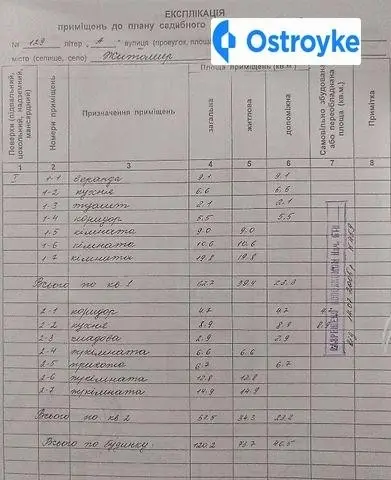 ЕКСПЛІКАЦІЯ
приміщень до плану садибного
Ostroyke
№ 129 літер „А" вулиця (провулок, площа
місто (селище, село) Житомир
Поверхи (підвальний, цокольний, надземний, мансардний)
Номери приміщень
Призначення приміщень
Площа приміщень (кв.м.)
загальна
житлова
допоміжна
Самовільно збудована або переобладнана площа (кв.м.)
Примітка
1 2 3 4 5 6 7 8
I 1-1 веранда 9.1 9.1
1-2 кухня 6.6 6.6
1-3 туалет 2.1 2.1
1-4 коридор 5.5 5.5
1-5 кімната 9.0 9.0
1-6 кімната 10.6 10.6
1-7 кімната 19.8 19.8
Всього по кв 1 62.7 39.4 23.3
2-1 коридор 4.7 4.7
2-2 кухня 8.9 8.9 8.9
2-3 кладова 2.9 2.9
2-4 кімната 6.6 6.6
2-5 6.7 6.7
2-6 кімната 12.8 12.8
2-7 кімната 14.9 14.9
Всього по кв 2 57.5 34.3 23.2
Всього по будинку 120.2 73.7 46.5